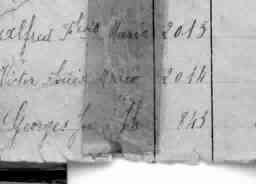 Alfred Marie 2015
Victor Louis Marie 2014
Georges 843